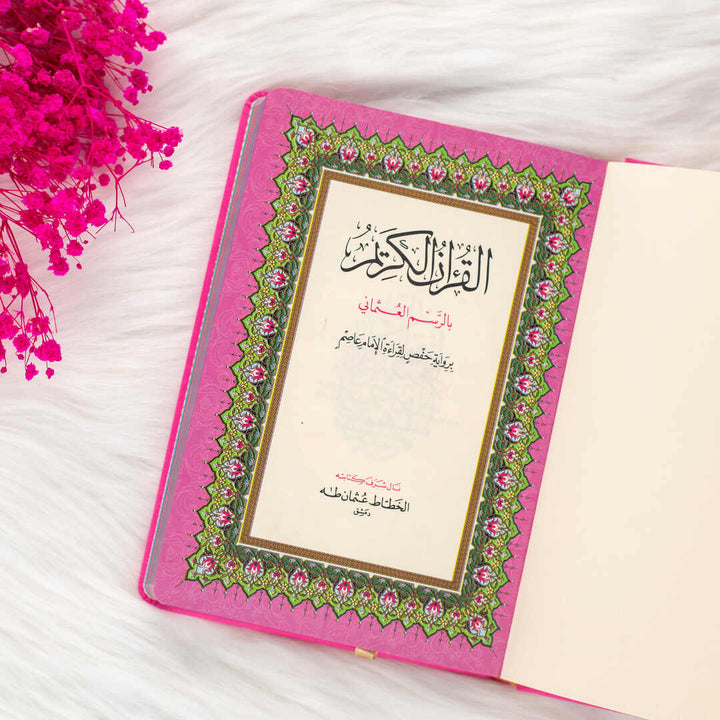 القُرآنُ الكَرِيمُ
بالرَّسْمِ العُثماني
بِرِوَايَةِ حَفْصٍ لِقِرَاءَةِ الإِمَامِ عَاصِمْ
نال شرف كتابته
الخطاط عُثمان طٰه
دمشق